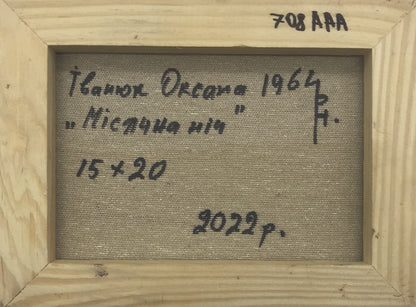 708 AAA
Іванюк Оксана 1964
р.н.
„Місячна ніч"
15 x 20
2022 р.